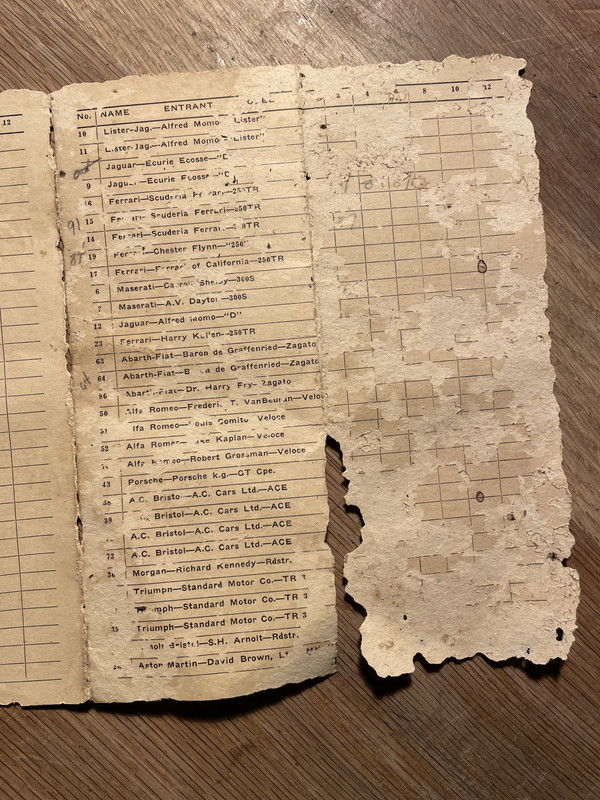 12
No. NAME ENTRANT 2 4 6 8 10 12
10 Lister-Jag.—Alfred Momo Lister"
11 Lister-Jag.—Alfred Momo "Lister"
Jaguar—Ecurie Ecosse—"D"
9 Jaguar—Ecurie Ecosse—"D"
16 Ferrari—Scuderia Ferrari—250TR
91 15 Ferrari—Scuderia Ferrari—250TR
14 Ferrari—Scuderia Ferrari—250TR
19 Ferrari—Chester Flynn—"250"
17 Ferrari—Ferrari of California—250TR
6 Maserati—Carroll Shelby—300S
7 Maserati—A.V. Dayton—300S
12 Jaguar—Alfred Momo—"D"
23 Ferrari—Harry Kullen—250TR
63 Abarth-Fiat—Baron de Graffenried—Zagato
64 Abarth-Fiat—Baron de Graffenried—Zagato
86 Abarth-Fiat—Dr. Harry Fry—Zagato
50 Alfa Romeo—Frederic T. VanBeuran—Veloce
51 Alfa Romeo—Louis Comito Veloce
52 Alfa Romeo Kaplan—Veloce
Alfa Romeo—Robert Grossman—Veloce
43 Porsche—Porsche k.g.—GT Cpe.
A.C. Bristol—A.C. Cars Ltd.—ACE
39 A.C. Bristol—A.C. Cars Ltd.—ACE
A.C. Bristol—A.C. Cars Ltd.—ACE
72 A.C. Bristol—A.C. Cars Ltd.—ACE
Morgan—Richard Kennedy—Rdstr.
Triumph—Standard Motor Co.—TR 3
Triumph—Standard Motor Co.—TR 3
Triumph—Standard Motor Co.—TR 3
Arnolt Bristol—S.H. Arnolt—Rdstr.
Aston Martin—David Brown, Lt